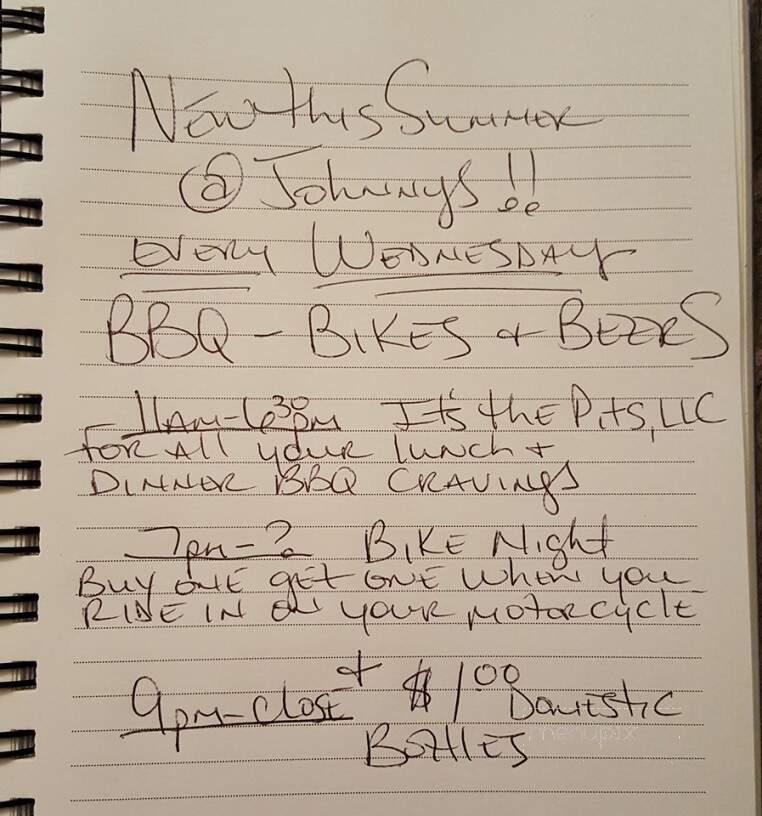 New this Summer
@ Johnnys!!
EVERY WEDNESDAY
BBQ - BIKES + BEERS
11AM-6³⁰pm It's the Pits, LLC
FOR All your lunch +
DINNER BBQ CRAVINGS
7pm-? BIKE Night
BUY ONE GET ONE WHEN you
RIDE IN ON YOUR MOTORCYCLE
+
9pm-Close $1⁰⁰ Domestic
Bottles
menupix